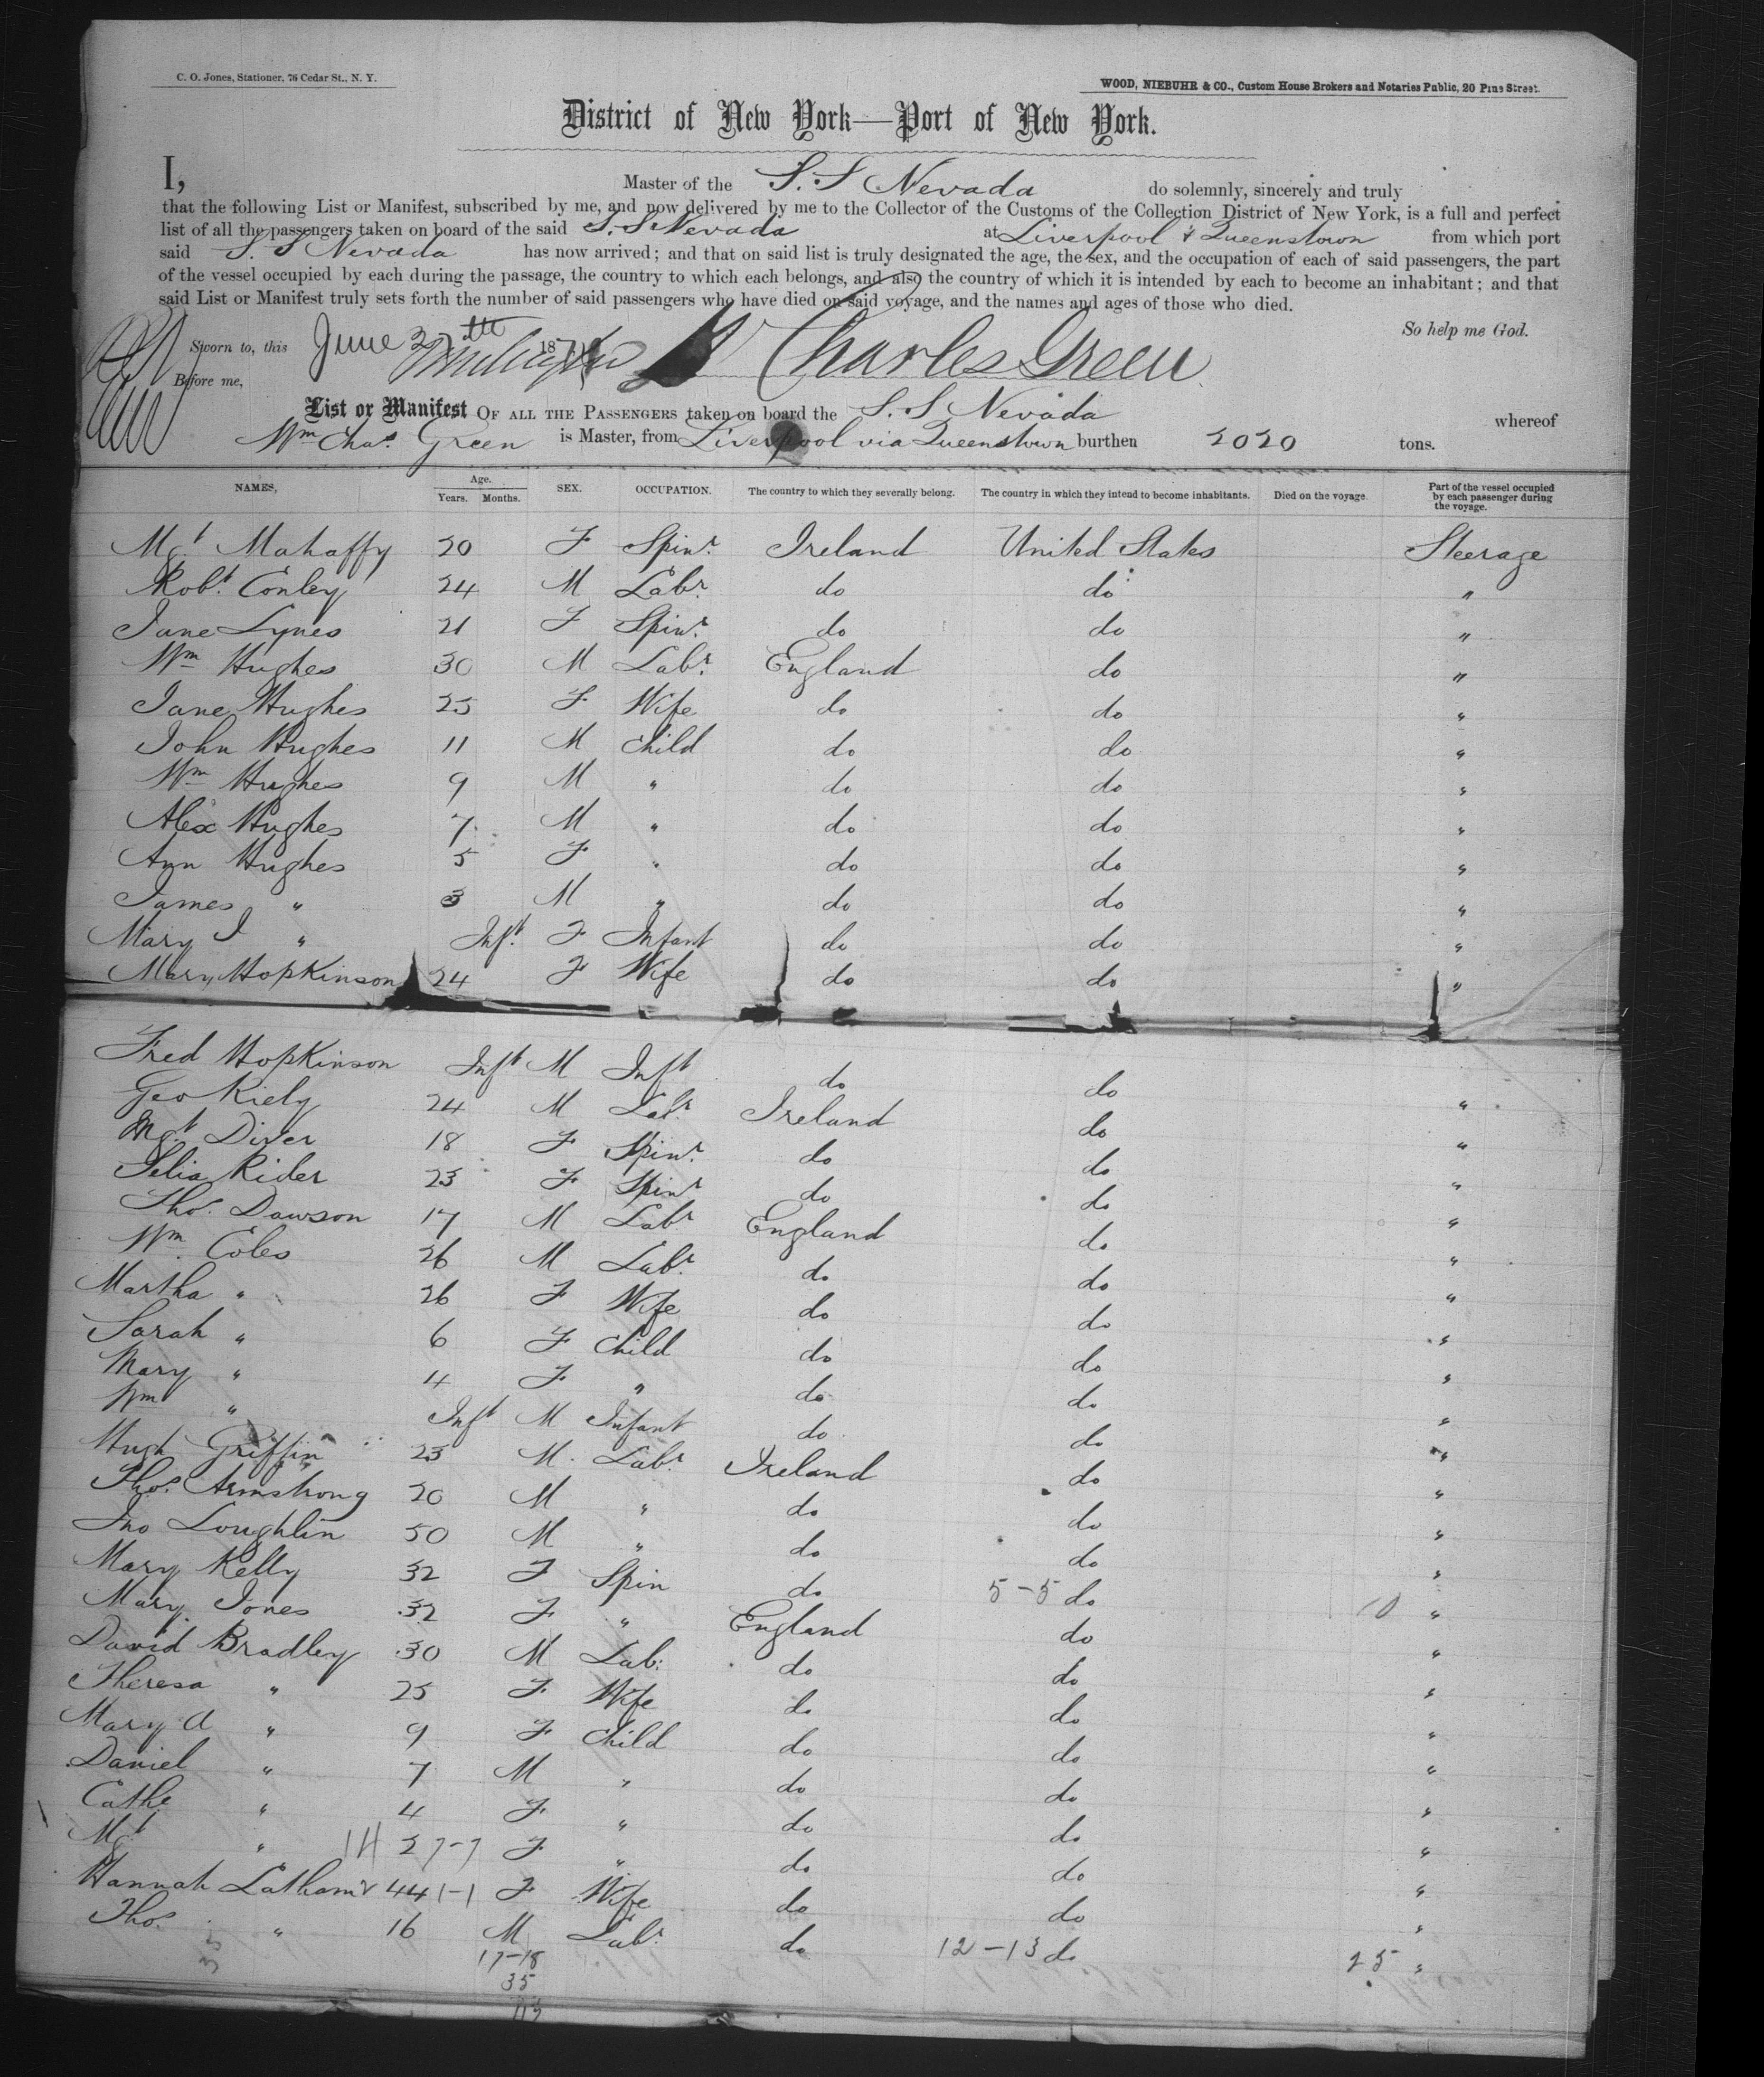 C. O. Jones, Stationer, 76 Cedar St., N. Y.
WOOD, NIEBUHR & CO., Custom House Brokers and Notaries Public, 20 Pine Street.
District of New York—Port of New York.
I, Master of the S. S Nevada do solemnly, sincerely and truly
that the following List or Manifest, subscribed by me, and now delivered by me to the Collector of the Customs of the Collection District of New York, is a full and perfect
list of all the passengers taken on board of the said S. S Nevada at Liverpool & Queenstown from which port
said S. S Nevada has now arrived; and that on said list is truly designated the age, the sex, and the occupation of each of said passengers, the part
of the vessel occupied by each during the passage, the country to which each belongs, and also the country of which it is intended by each to become an inhabitant; and that
said List or Manifest truly sets forth the number of said passengers who have died on said voyage, and the names and ages of those who died.
So help me God.
Sworn to, this June 187
Charles Green
Before me,
List or Manifest OF ALL THE PASSENGERS taken on board the S. S Nevada whereof
Wm Chas. Green is Master, from Liverpool via Queenstown burthen 2020 tons.
NAMES, Age. Years. Months. SEX. OCCUPATION. The country to which they severally belong. The country in which they intend to become inhabitants. Died on the voyage. Part of the vessel occupied by each passenger during the voyage.
Mgt. Mahaffy 20 F Spinr. Ireland United States Steerage
Robt. Conley 24 M Labr. do do "
Jane Lynes 21 F Spinr. do do "
Wm Hughes 30 M Labr. England do "
Jane Hughes 25 F Wife do do "
John Hughes 11 M Child do do "
Wm Hughes 9 M " do do "
Alex Hughes 7 M " do do "
Ann Hughes 5 F " do do "
James " 3 M " do do "
Mary J " Inft. F Infant do do "
Mary Hopkinson 24 F Wife do do "
Fred Hopkinson Inft M Inft do do "
Geo Kiely 24 M Labr. Ireland do "
Mgt. Diver 18 F Spinr. do do "
Selia Rider 23 F Spinr do do "
Thos. Dawson 17 M Labr England do "
Wm. Coles 26 M Labr. do do "
Martha " 26 F Wife do do "
Sarah " 6 F Child do do "
Mary " 4 F " do do "
Wm " Inft M Infant do do "
Hugh Griffin 23 M. Labr. Ireland do "
Thos. Armstrong 20 M " do do "
Jno Loughlin 50 M " do do "
Mary Kelly 32 F Spin do 5-5 do 10 "
Mary Jones 32 F " England do "
David Bradley 30 M Lab. do do "
Theresa " 25 F Wife do do "
Mary A " 9 F Child do do "
Daniel " 7 M " do do "
Cathe " 4 F " do do "
Mgt " 14 2 7-7 F " do do "
Hannah Latham 44 1-1 F Wife do do "
Thos. " 16 M Labr. do 12-13 do 25 "
35 17-18
35